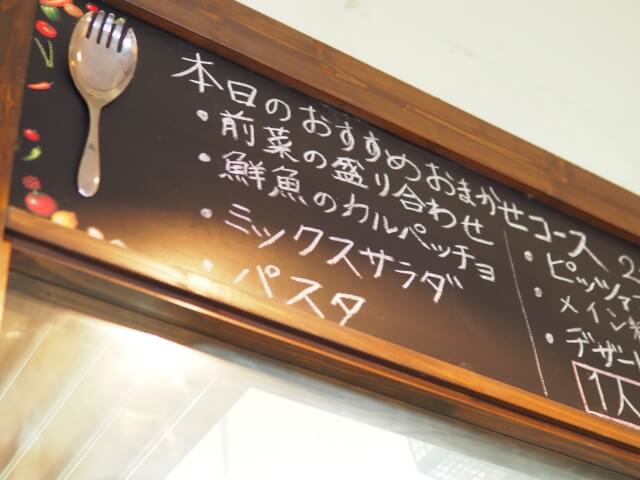 本日のおすすめおまかせコース 2
・前菜の盛り合わせ
・鮮魚のカルパッチョ
・ミックスサラダ
・パスタ
・ピッツァ
・メイン
・デザー
1人